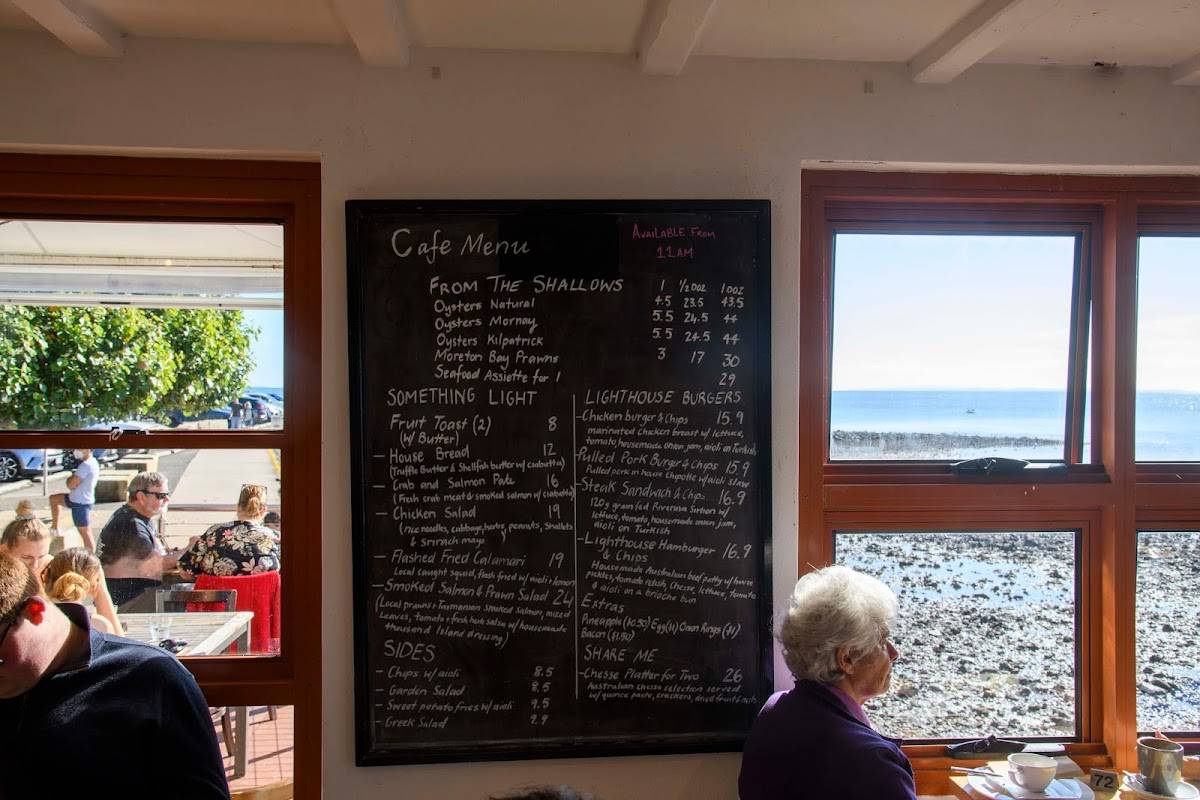 Cafe Menu
AVAILABLE FROM
11AM
FROM THE SHALLOWS 1 1/2 DOZ 1 DOZ
Oysters Natural 4.5 23.5 43.5
Oysters Mornay 5.5 24.5 44
Oysters Kilpatrick 5.5 24.5 44
Moreton Bay Prawns 3 17 30
Seafood Assiette for 1 29
SOMETHING LIGHT
Fruit Toast (2) 8
(w/ Butter)
- House Bread 12
(Truffle Butter & Shellfish butter w/ ciabatta)
- Crab and Salmon Pate 16
(Fresh crab meat & smoked salmon w/ ciabatta)
- Chicken Salad 19
(rice noodles, cabbage, herbs, peanuts, shallots
& sriracha mayo
- Flashed Fried Calamari 19
Local caught squid, flash fried w/ aioli & lemon
- Smoked Salmon & Prawn Salad 24
(Local prawns & Tasmanian Smoked Salmon, mixed
Leaves, tomato & fresh herb salsa w/ housemade
thousand Island dressing)
SIDES
- Chips w/ aioli 8.5
- Garden Salad 8.5
- Sweet potato fries w/ aioli 9.5
- Greek Salad 9.9
LIGHTHOUSE BURGERS
- Chicken burger & Chips 15.9
marinated Chicken breast w/ lettuce,
tomato, housemade onion jam, aioli on Turkish
- Pulled Pork Burger & Chips 15.9
Pulled pork in house Chipotle w/ aioli slaw
- Steak Sandwich & Chips 16.9
120g grain fed Riverina Sirloin w/
lettuce, tomato, housemade onion jam,
aioli on Turkish
- Lighthouse Hamburger 16.9
& Chips
Housemade Australian beef patty w/ house
pickles, tomato relish, cheese, lettuce, tomato
& aioli on a brioche bun
Extras
Pineapple ($0.50) Egg ($1) Onion Rings ($1)
Bacon ($1.50)
SHARE ME
- Chesse Platter for Two 26
Australian chesse selection served
w/ quince paste, crackers, dried fruit & nuts
72